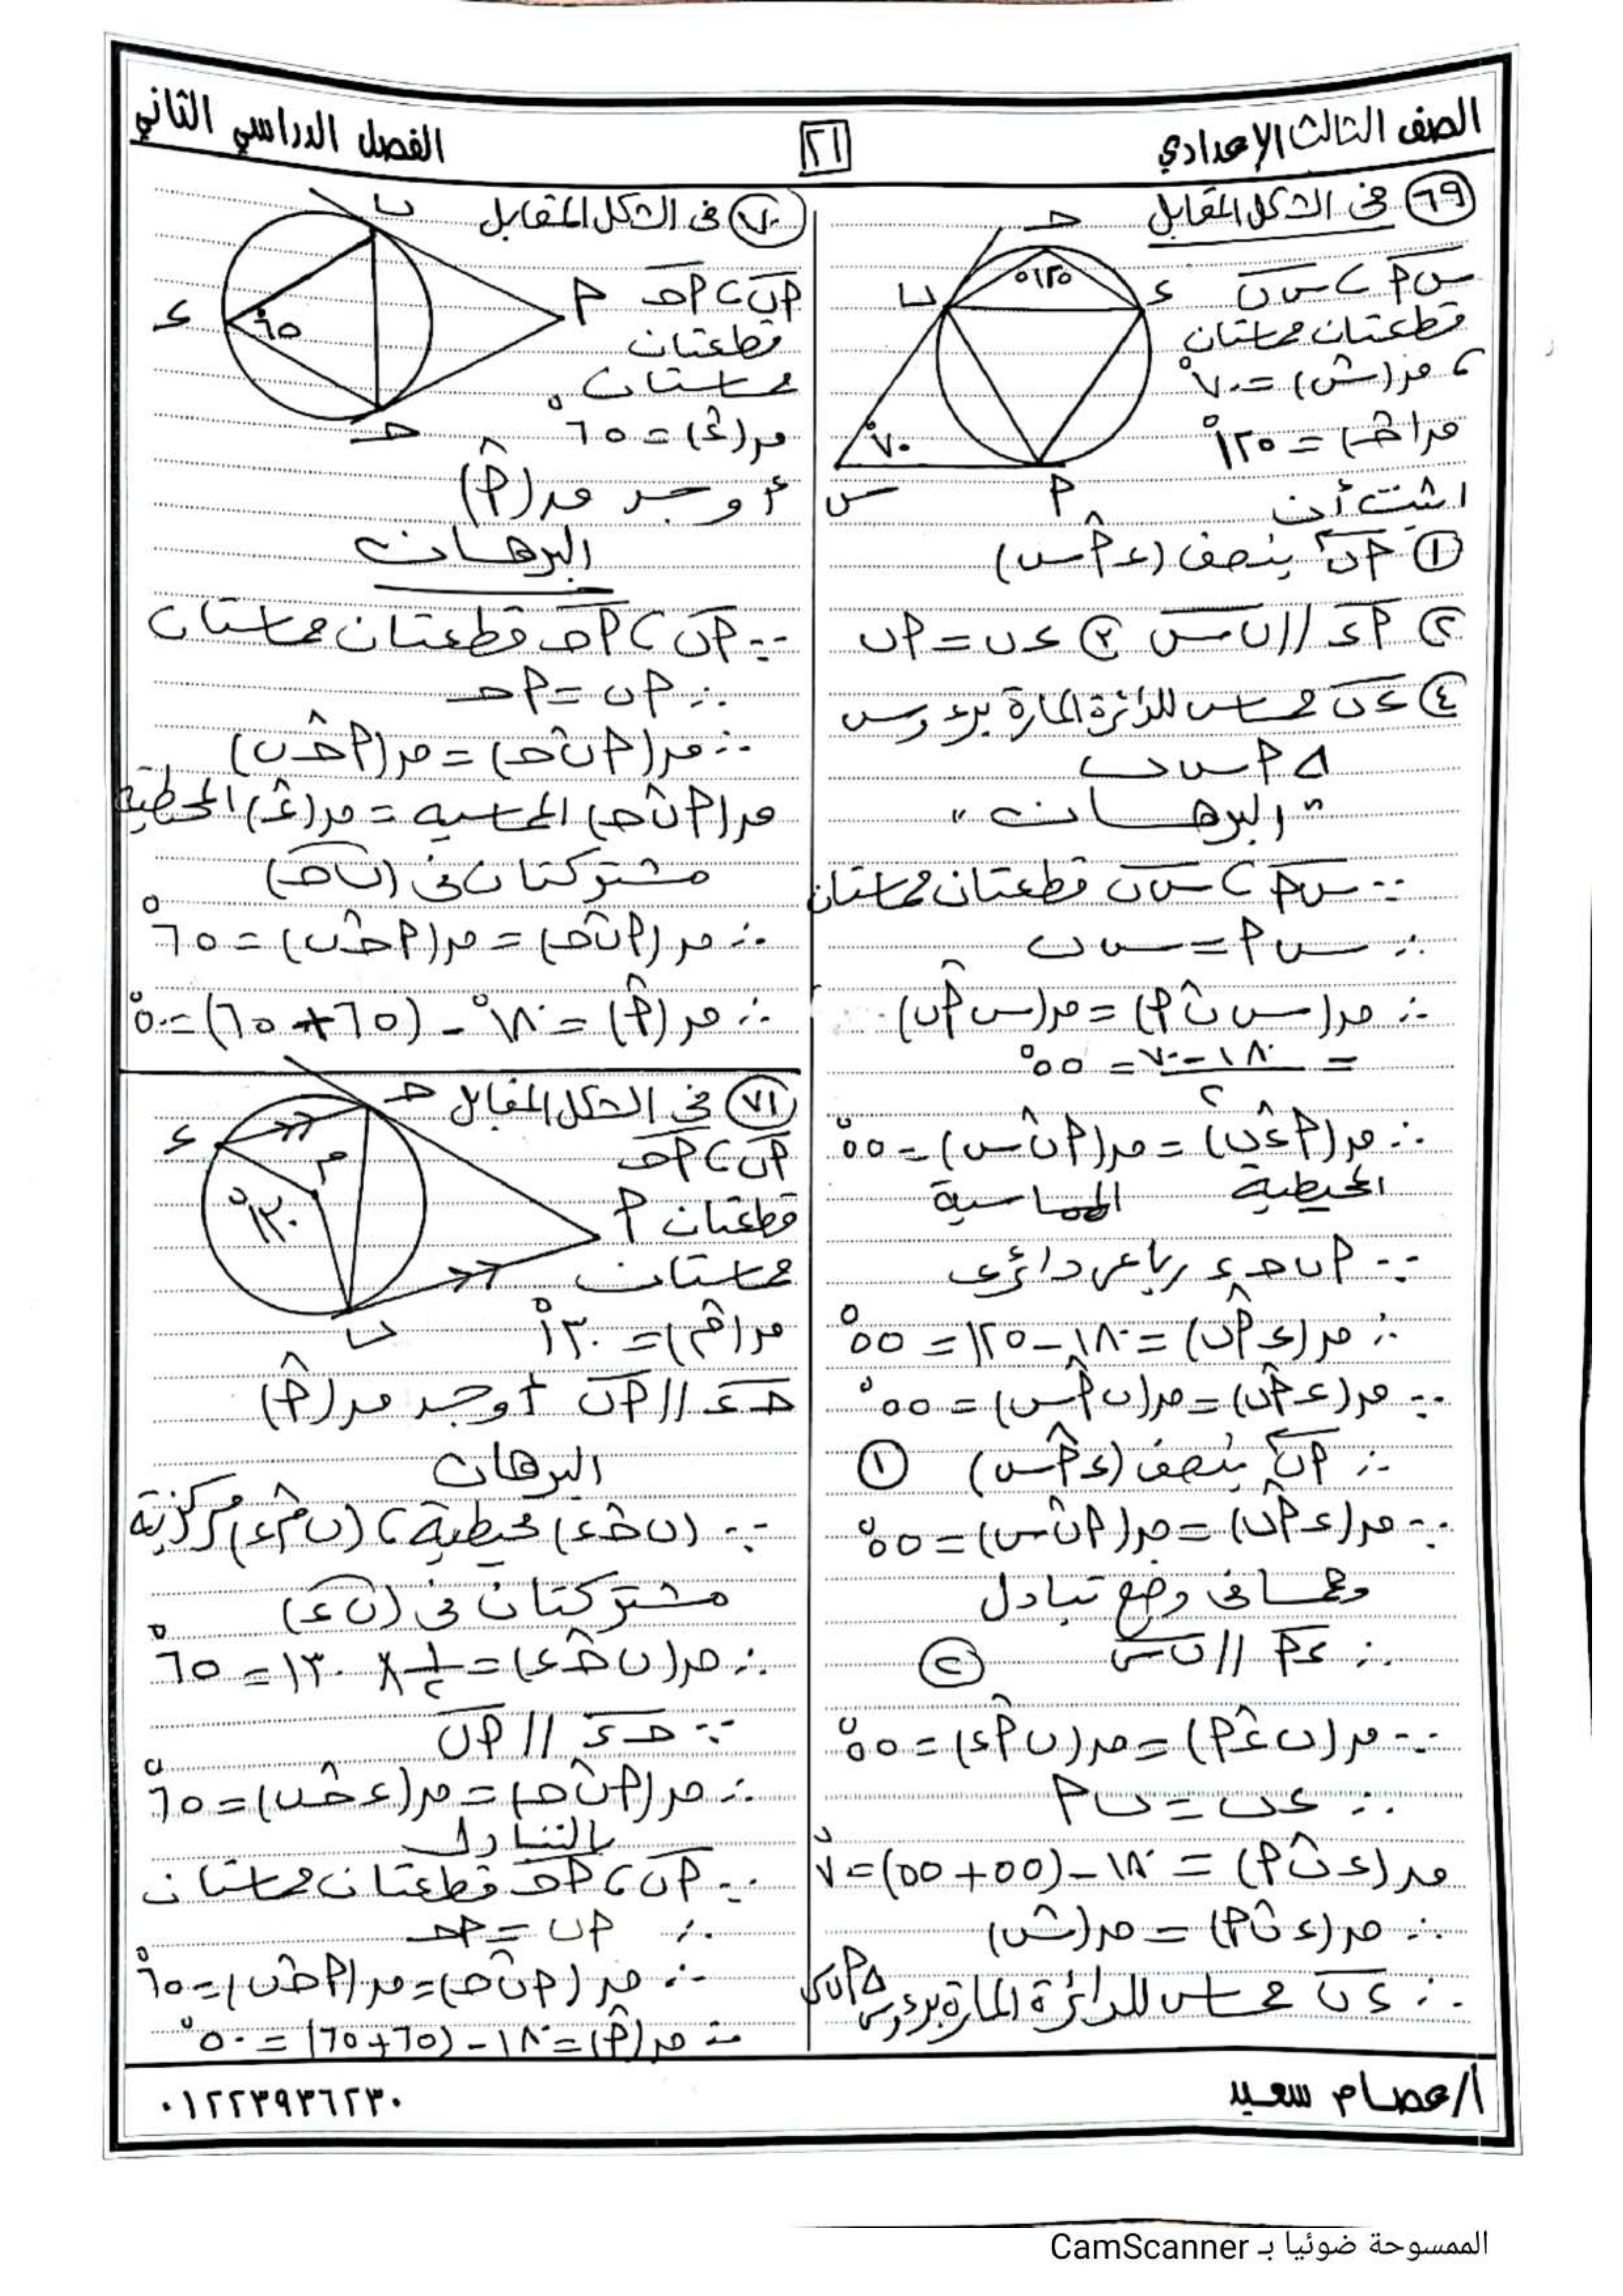 الصف الثالث الإعدادي
٢١
الفصل الدراسي الثاني
٦٩ في الشكل المقابل
س أ ، س ب
قطعتان مماستان
، م(س) = ٧٠°
م(حـ) = ١٢٥°
اثبت أن
١ أب ينصف (ء أ س)
٢ أء // ب س ٣ ء ب = أ ب
٤ ء ب مماس للدائرة المارة برءوس
△ أ س ب
"البرهان"
∵ س أ ، س ب قطعتان مماستان
∴ س أ = س ب
∴ م(س ب أ) = م(س أ ب)
= ١٨٠ - ٧٠ / ٢ = ٥٥°
∴ م(أ ء ب) = م(أ ب س) = ٥٥°
المحيطية المماسية
∵ أ ب حـ ء رباعي دائري
∴ م(ء أ ب) = ١٨٠ - ١٢٥ = ٥٥°
∵ م(ء أ ب) = م(ب أ س) = ٥٥°
∴ أ ب ينصف (ء أ س) ١
∵ م(ء أ ب) = م(أ ب س) = ٥٥°
وهما في وضع تبادل
∴ ء أ // ب س ٢
∵ م(ب ء أ) = م(ب أ ء) = ٥٥°
∴ ء ب = ب أ
م(ء ب أ) = ١٨٠ - (٥٥ + ٥٥) = ٧٠°
∴ م(ء ب أ) = م(س)
∴ ء ب مماس للدائرة المارة برءوس △ أ ب س
٧٠ في الشكل المقابل
أ ب ، أ حـ
قطعتان
مماستان
م(ء) = ٦٥°
أوجد م(أ)
البرهان
∵ أ ب ، أ حـ قطعتان مماستان
∴ أ ب = أ حـ
∴ م(أ ب حـ) = م(أ حـ ب)
م(أ ب حـ) المماسية = م(ء) المحيطية
مشتركتان في (ب حـ)
∴ م(أ ب حـ) = م(أ حـ ب) = ٦٥°
∴ م(أ) = ١٨٠° - (٦٥ + ٦٥) = ٥٠°
٧١ في الشكل المقابل
أ ب ، أ حـ
قطعتان
مماستان
م(م) = ١٣٠°
حـ ء // أ ب أوجد م(أ)
البرهان
∵ (ب حـ ء) محيطية ، (ب م ء) مركزية
مشتركتان في (ب ء)
∴ م(ب حـ ء) = ١/٢ × ١٣٠ = ٦٥°
∵ حـ ء // أ ب
∴ م(أ ب حـ) = م(ء حـ ب) = ٦٥°
بالتبادل
∵ أ ب ، أ حـ قطعتان مماستان
∴ أ ب = أ حـ
∴ م(أ ب حـ) = م(أ حـ ب) = ٦٥°
∴ م(أ) = ١٨٠ - (٦٥ + ٦٥) = ٥٠°
أ/عصام سعيد
٠١٢٢٣٩٣٦٢٣٠
الممسوحة ضوئيا بـ CamScanner